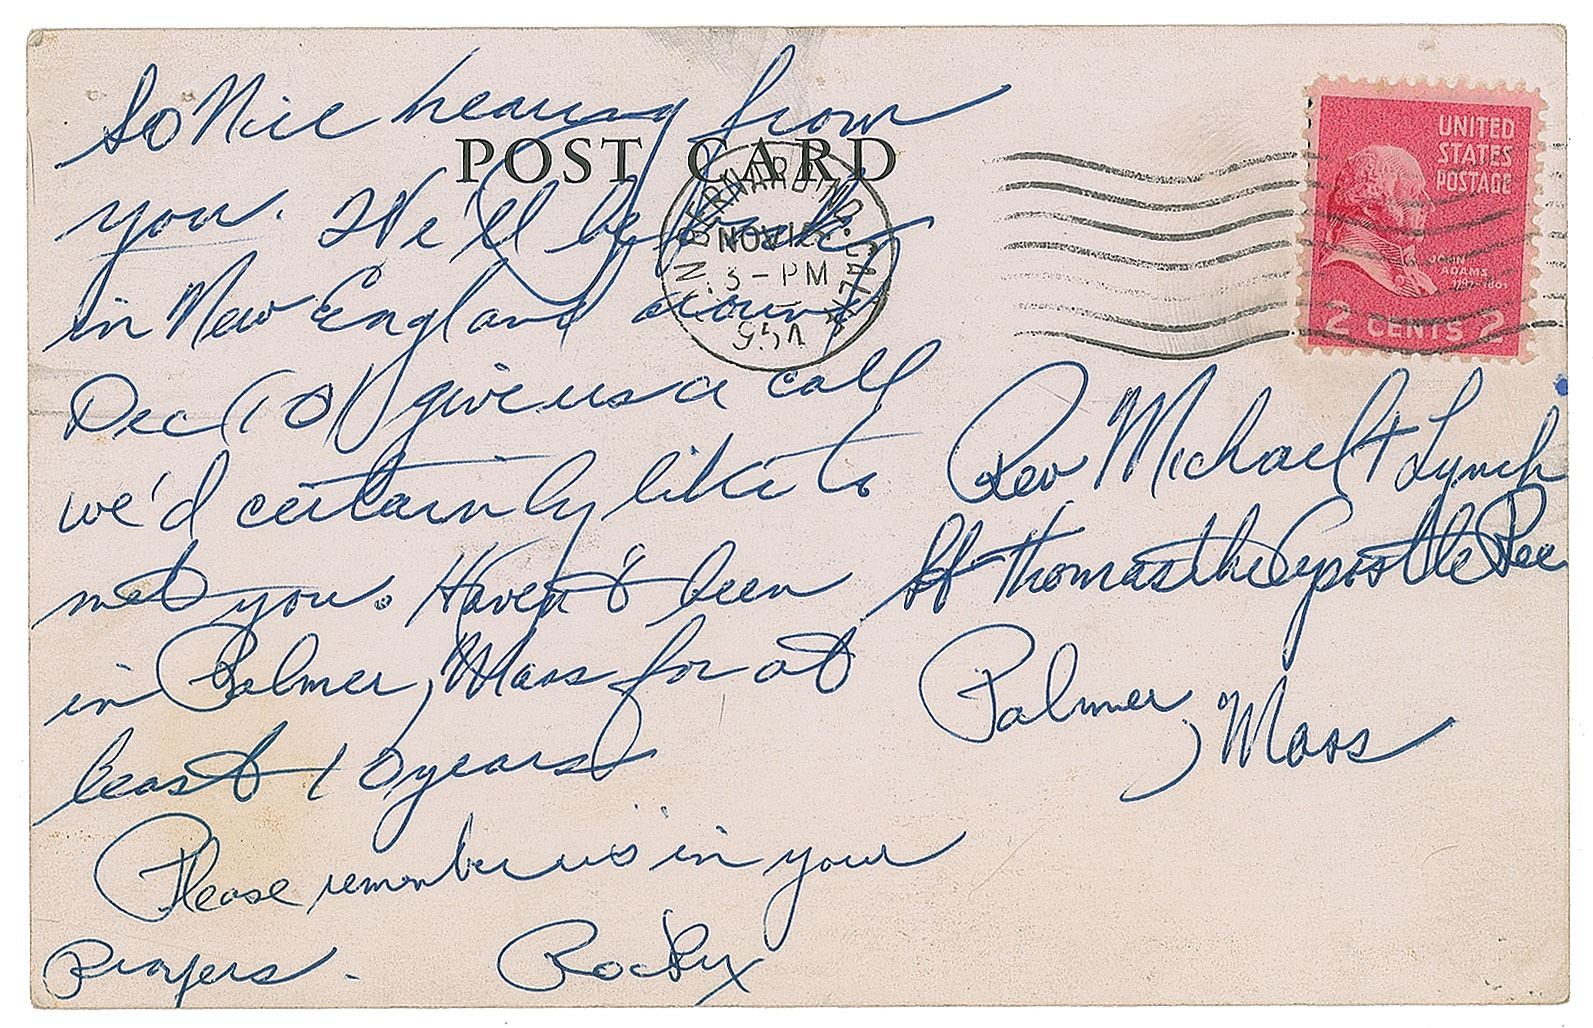 So Nice hearing from
POST CARD
you. We'll be back
in New England around
Dec (10) give us a call
we'd certainly like to
met you. Haven't been
in Palmer, Mass for at
least 10 years
Please remember us in your
Prayers. Rocky
BERNARDINO. CALIF
NOV
3-PM
UNITED
STATES
POSTAGE
JOHN
ADAMS
1797-1801
2 CENTS 2
Rev Michael F Lynch
St Thomas the Apostle Rec
Palmer, Mass